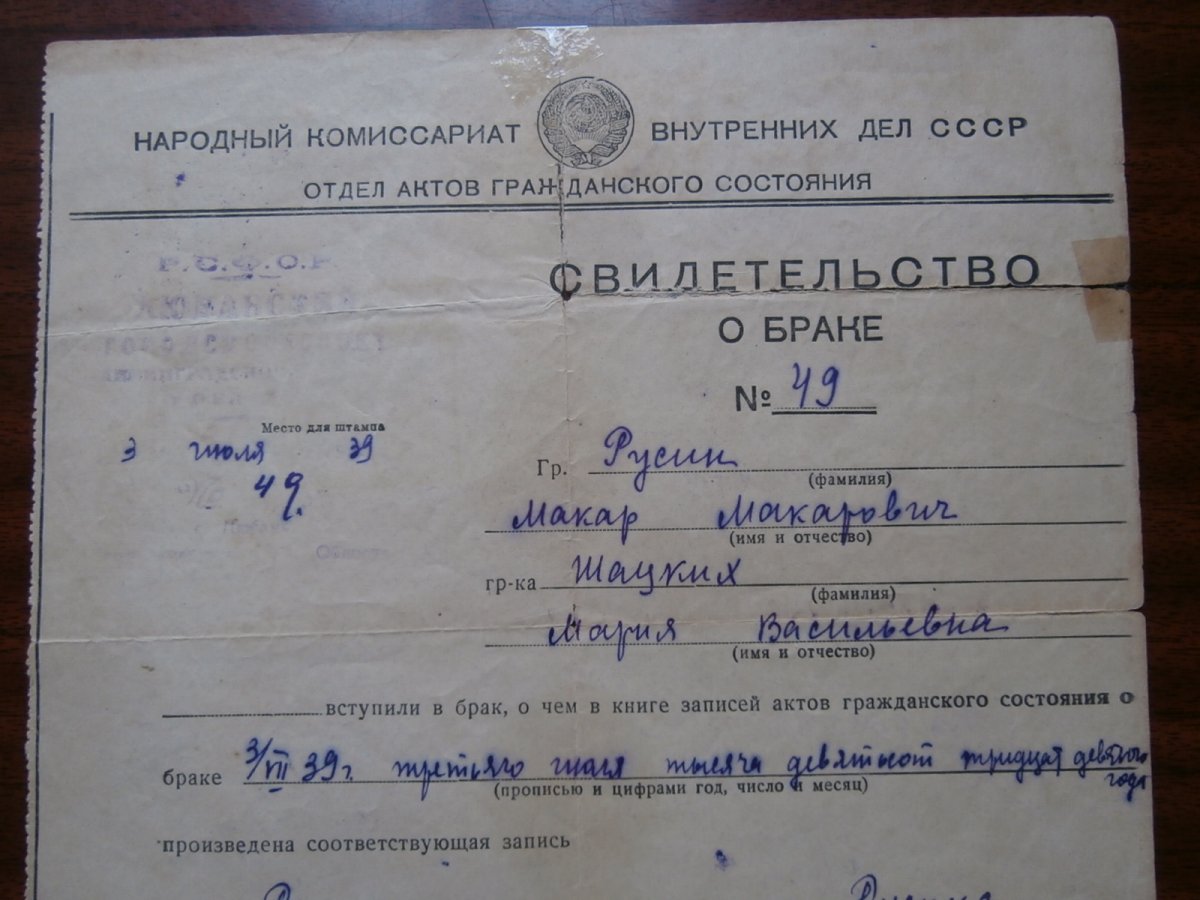 НАРОДНЫЙ КОМИССАРИАТ ВНУТРЕННИХ ДЕЛ СССР
ОТДЕЛ АКТОВ ГРАЖДАНСКОГО СОСТОЯНИЯ
Р.С.Ф.С.Р
СВИДЕТЕЛЬСТВО
О БРАКЕ
№ 49
Место для штампа
3 июля 39
49.
Гр. Русин
(фамилия)
Макар Макарович
(имя и отчество)
гр-ка Шацких
(фамилия)
Мария Васильевна
(имя и отчество)
вступили в брак, о чем в книге записей актов гражданского состояния о
браке 3/VII 39 г. третьяго июля тысяча девятьсот тридцат девятого
года
(прописью и цифрами год, число и месяц)
произведена соответствующая запись